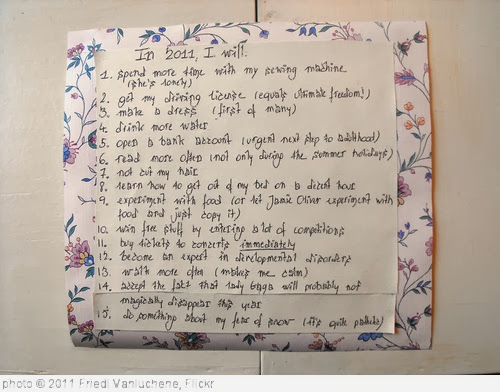 In 2011, I will.
1. spend more time with my sewing machine
(she's lonely)
2. get my driving license (equals ultimate freedom!)
3. make a dress (first of many)
4. drink more water
5. open a bank account (urgent next step to adulthood)
6. read more often (not only during the summer holidays)
7. not cut my hair
8. learn how to get out of my bed on a decent hour
9. experiment with food (or let Jamie Oliver experiment with
food and just copy it)
10. win free stuff by entering a lot of competitions
11. buy tickets to concerts immediately
12. become an expert in developmental disorders
13. walk more often (makes me calm)
14. accept the fact that lady gaga will probably not
magically disappear this year
15. do something about my fear of snow (it's quite pathetic)
photo © 2011 Friedl Vanluchene, Flickr